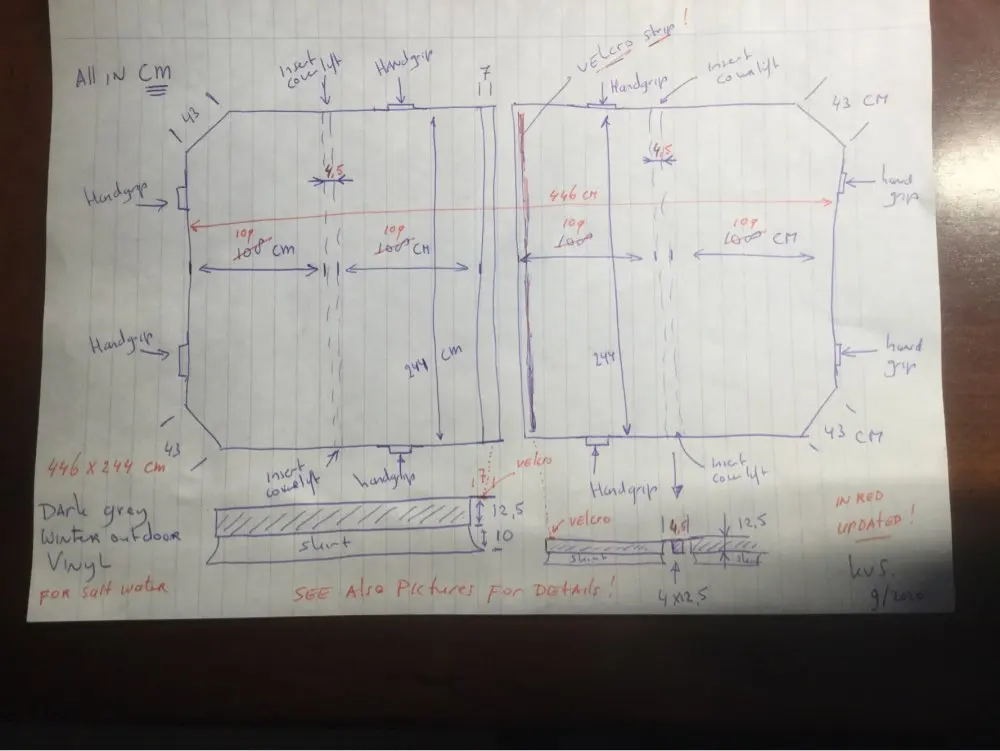 All in CM
insert
coverlift
Handgrip
7
VELCRO strip!
Handgrip
insert
coverlift
43
43 CM
4,5
4,5
Handgrip
hand
grip
446 CM
109
100 CM
109
100 CM
109
100
109
100 CM
244 CM
244
Handgrip
hand
grip
43
43 CM
insert
coverlift
handgrip
Handgrip
insert
coverlift
446 x 244 cm
Dark grey
Winter outdoor
Vinyl
FOR salt water
7
velcro
12,5
10
skirt
velcro
4,5
12,5
skirt
4 x 12,5
IN RED
UPDATED!
SEE Also Pictures For DETAILS!
kvs.
9/2020